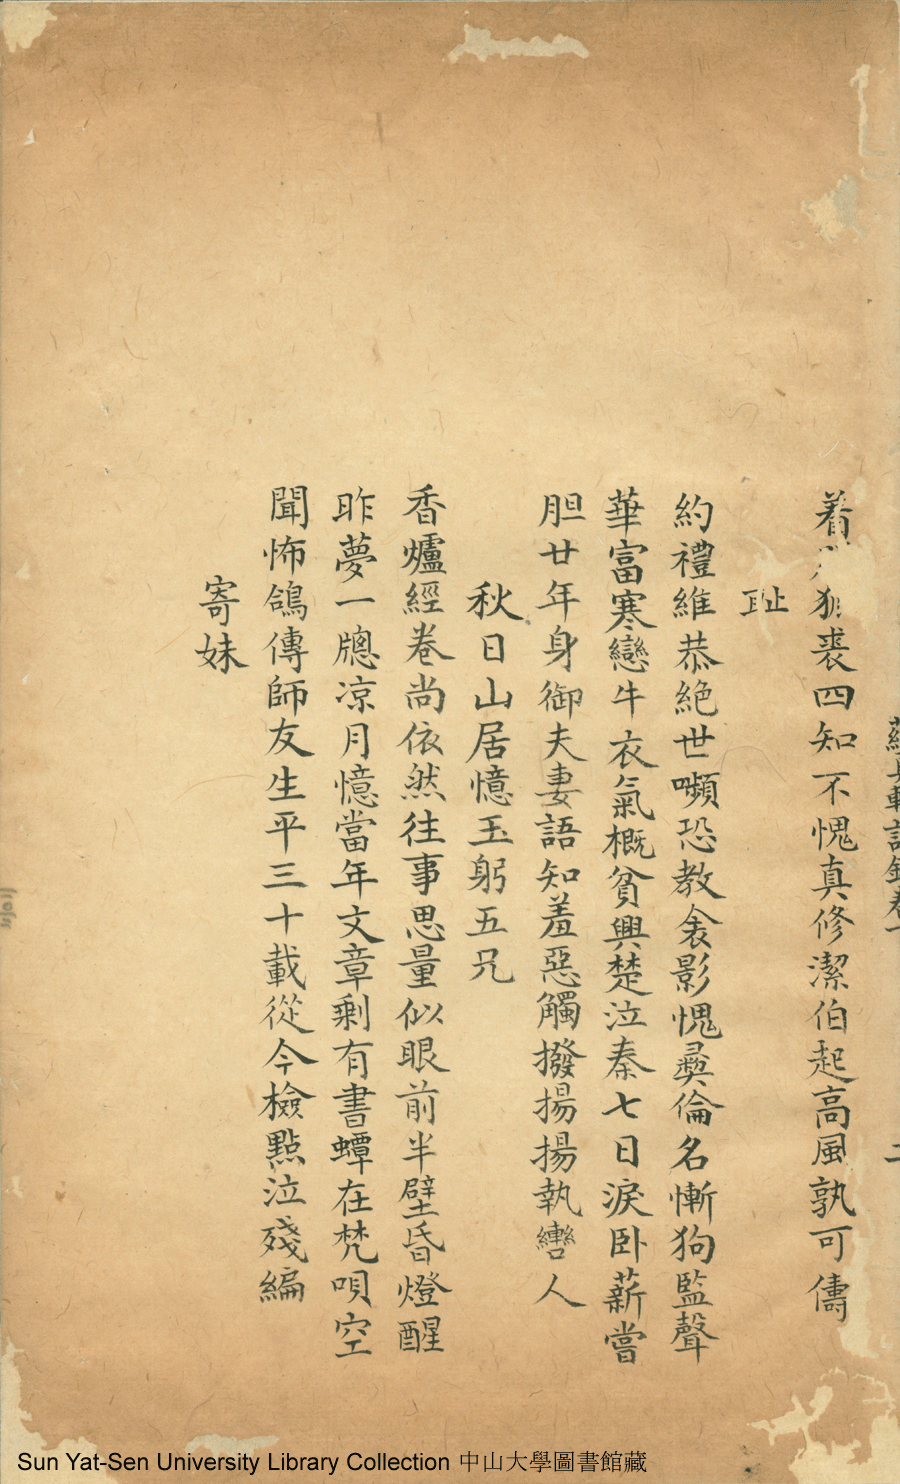 着狐裘四知不愧真修潔伯起高風孰可儔
耻
約禮維恭絕世嚬恐教衾影愧彞倫名慚狗監聲
華富寒戀牛衣氣概貧興楚泣秦七日淚卧薪嘗
胆廿年身御夫妻語知羞惡觸撥揚揚執轡人
秋日山居憶玉躬五兄
香爐經卷尚依然往事思量似眼前半壁昏燈醒
昨夢一牕凉月憶當年文章剩有書蟫在梵唄空
聞怖鴿傳師友生平三十載從今檢點泣殘編
寄妹
Sun Yat-Sen University Library Collection 中山大學圖書館藏